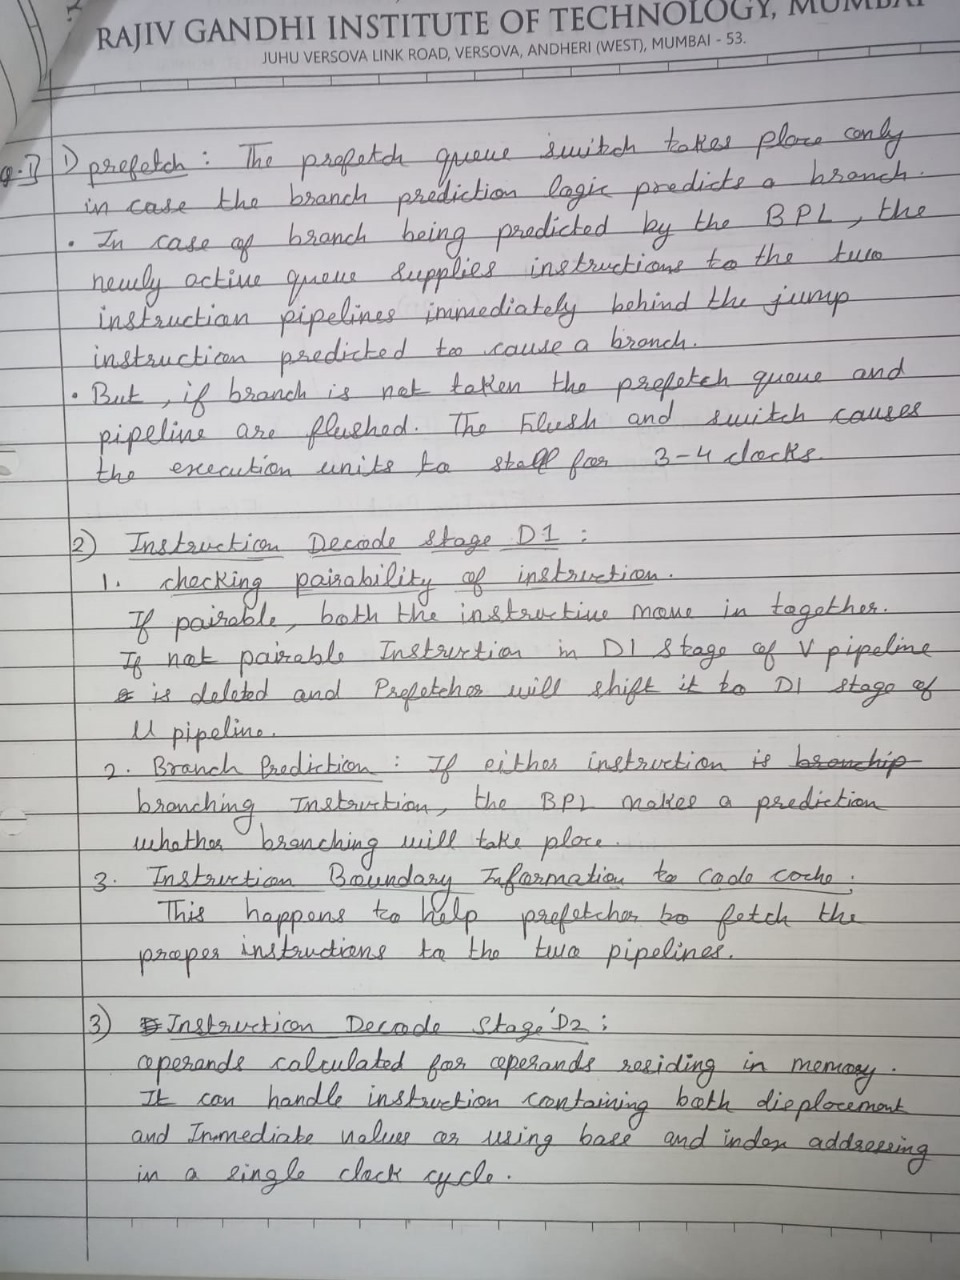 RAJIV GANDHI INSTITUTE OF TECHNOLOGY, MUMBAI
JUHU VERSOVA LINK ROAD, VERSOVA, ANDHERI (WEST), MUMBAI - 53.
Q.1] 1) prefetch : The prefetch queue switch takes place only
in case the branch prediction logic predicts a branch.
• In case of branch being predicted by the BPL, the
newly active queue supplies instructions to the two
instruction pipelines immediately behind the jump
instruction predicted to cause a branch.
• But, if branch is not taken the prefetch queue and
pipeline are flushed. The Flush and switch causes
the execution units to stall for 3-4 clocks.
2) Instruction Decode Stage D1 :
1. checking pairability of instruction.
If pairable, both the instructive move in together.
If not pairable Instruction in D1 Stage of V pipeline
is deleted and Prefetcher will shift it to D1 stage of
U pipeline.
2. Branch Prediction : If either instruction is branchip
branching Instruction, the BPL makes a prediction
whether branching will take place.
3. Instruction Boundary Information to Code cache.
This happens to help prefetcher to fetch the
proper instructions to the two pipelines.
3) Instruction Decode Stage D2 :
operands calculated for operands residing in memory.
It can handle instruction containing both displacement
and Immediate values or using base and index addressing
in a single clock cycle.